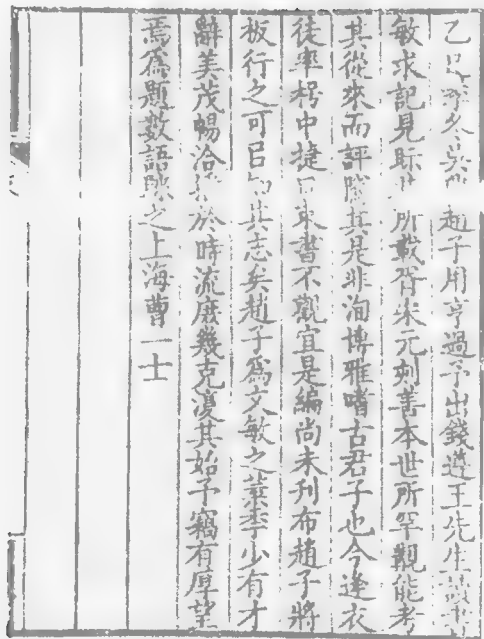 乙巳季冬吳興趙子用亨過予出錢遵王先生讀書
敏求記見眎其所載皆宋元刻善本世所罕覯能考
其從來而評隲其是非洵博雅嗜古君子也今逢衣
徒率枵中捷口束書不觀宜是編尚未刊布趙子將
板行之可㠯知其志矣趙子爲文敏之葉李少有才
辭美茂暢洽於時流庶幾克濅其始予竊有厚望
焉爲題數語歸之上海曹一士